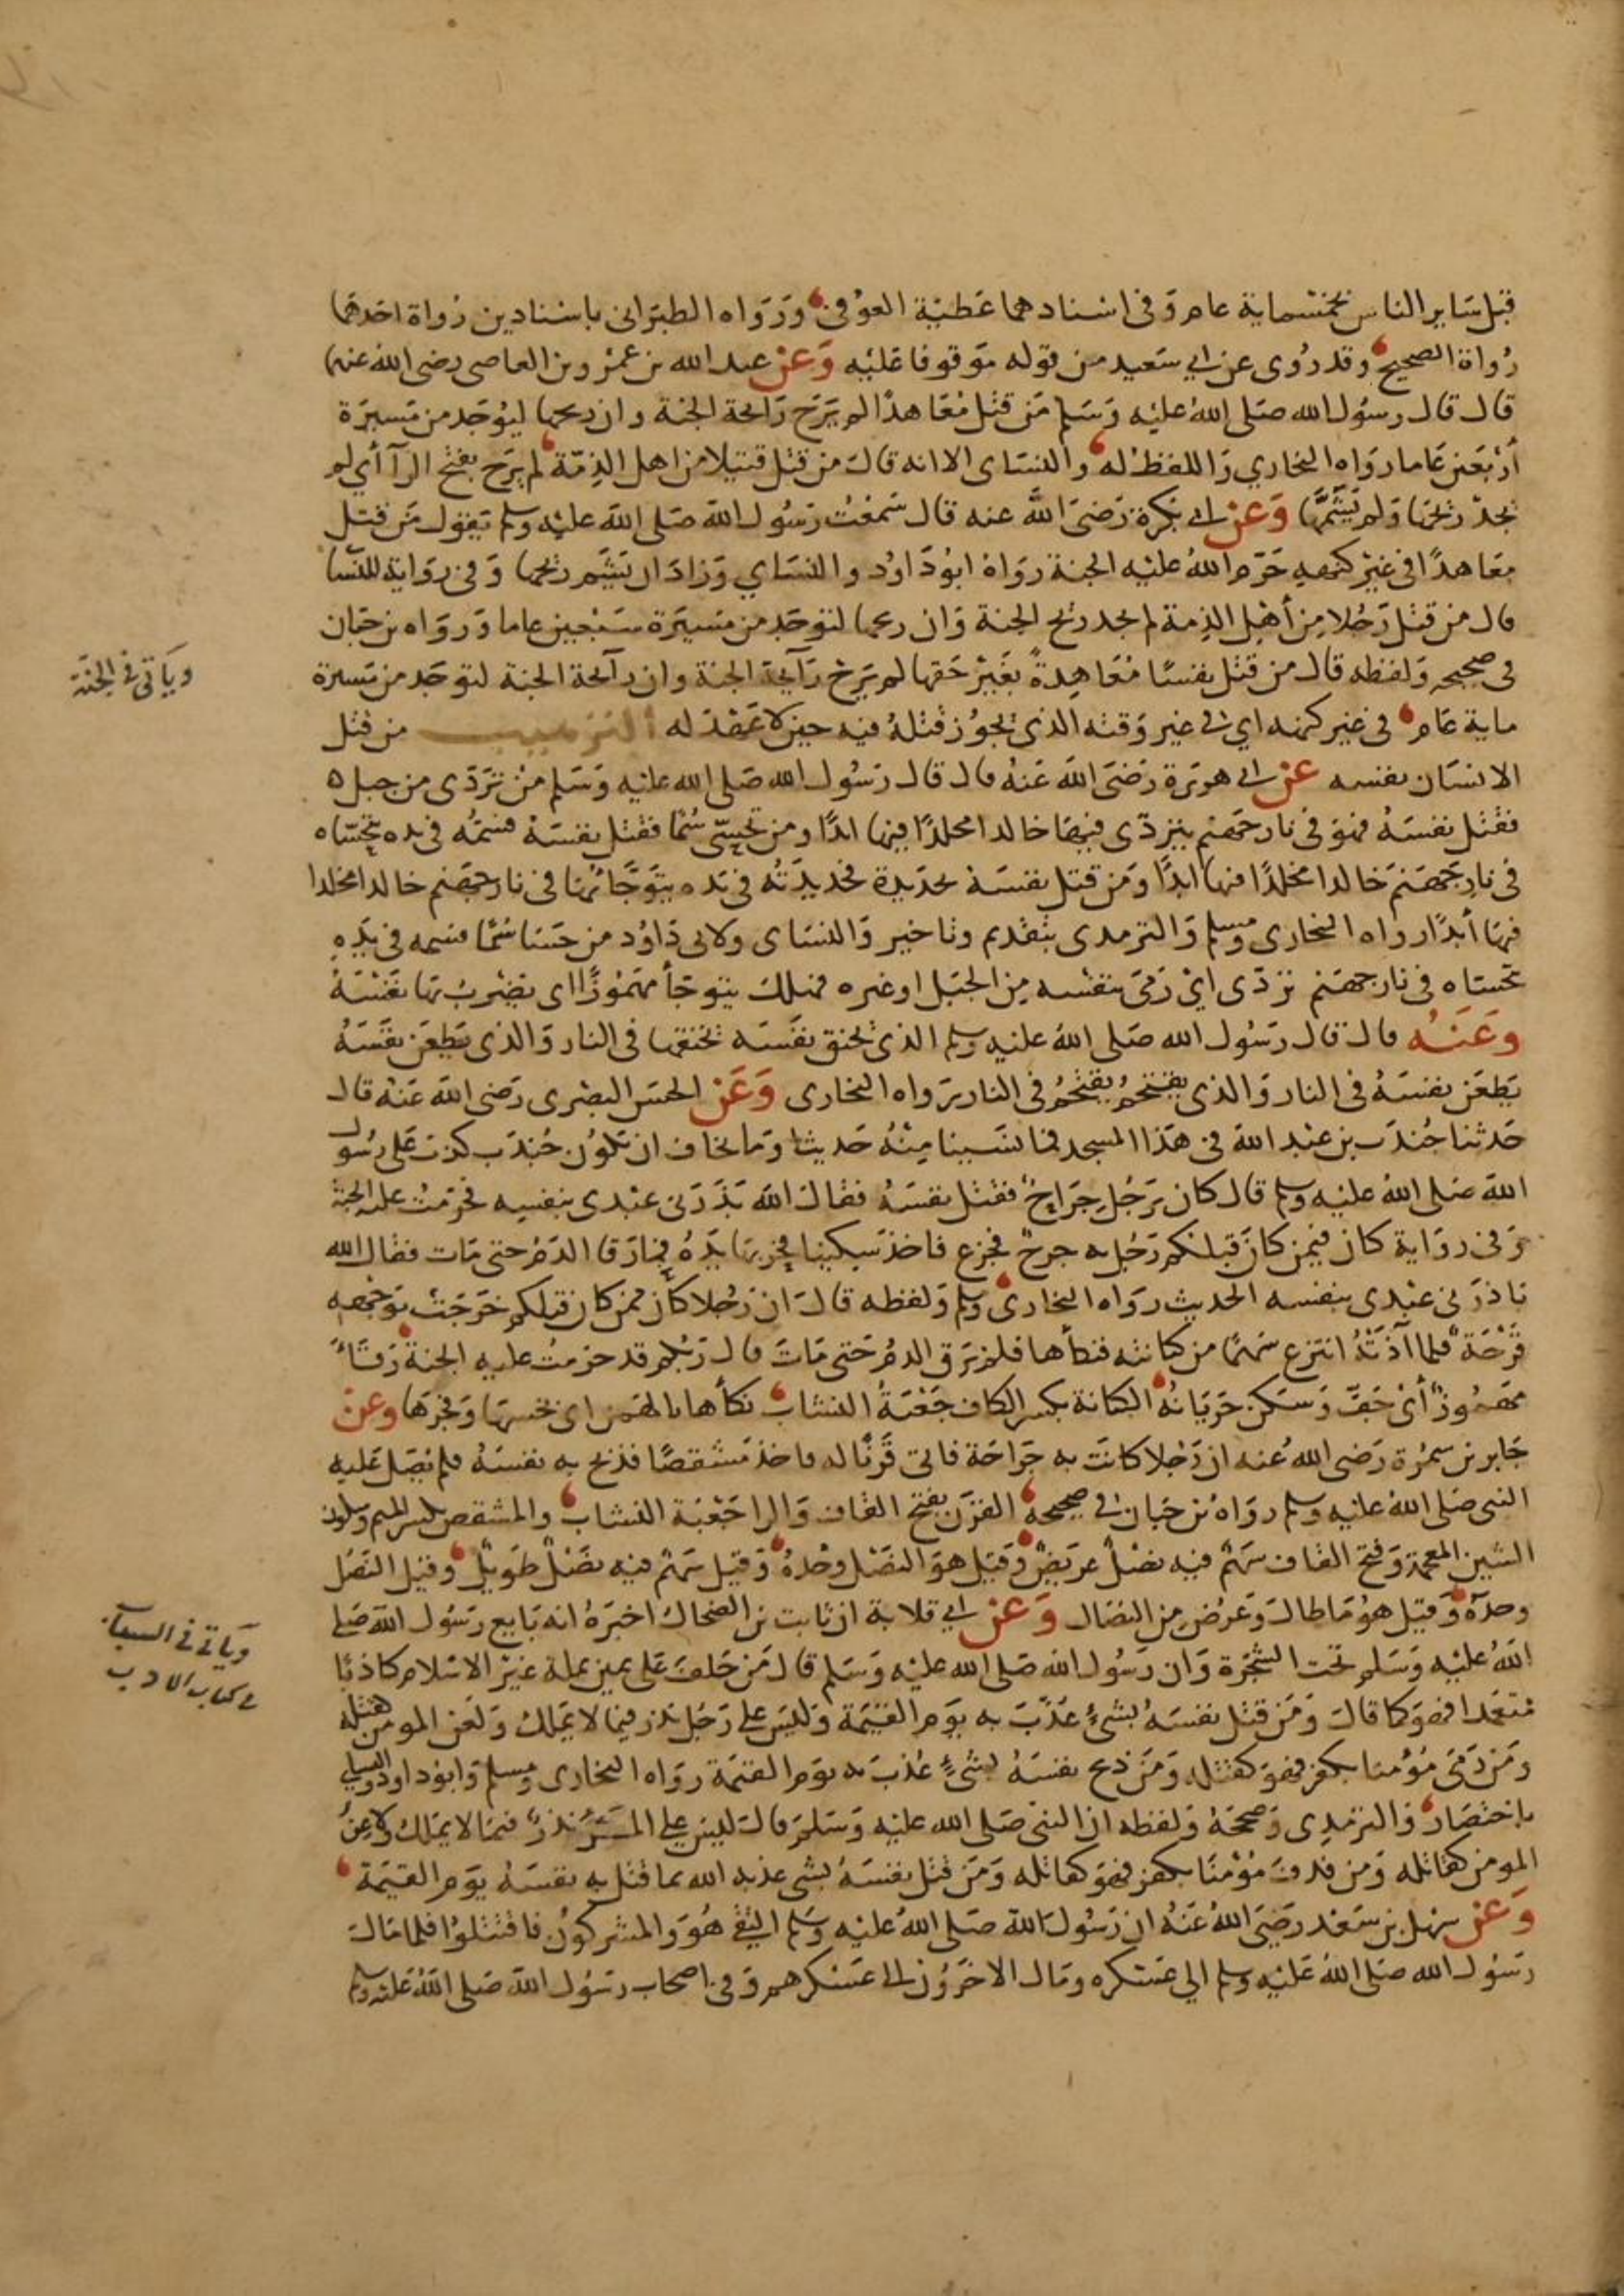 قبل ساير الناس بخمسماية عام وفي اسنادهما عطية العوفي ورواه الطبراني باسنادين رواة احدهما
رواة الصحيح وقد روى عن ابي سعيد من قوله موقوفا عليه وعن عبد الله بن عمرو بن العاصي رضى الله عنهما
قال قال رسول الله صلى الله عليه وسلم من قتل معاهدا لم يرح رائحة الجنة وان ريحها ليوجد من مسيرة
أربعين عاما رواه البخاري واللفظ له والنساى الا انه قال من قتل قتيلا من اهل الذمة لم يرح بفتح الرآ أي لم
يجد ريحها ولم يشمها وعن ابي بكرة رضى الله عنه قال سمعت رسول الله صلى الله عليه وسلم يقول من قتل
معاهدا في غير كنهه حرم الله عليه الجنة رواه ابو داود والنساي وزاد ان يشم ريحها وفي رواية للنسا
قال من قتل رجلا من أهل الذمة لم يجد ريح الجنة وان ريحها لتوجد من مسيرة سبعين عاما ورواه بن حبان
في صحيحه ولفظه قال من قتل نفسا معاهدة بغير حقها لم يرح رآيحة الجنة وان رآئحة الجنة لتوجد من مسيرة
ماية عام في غير كنهه اي في غير وقته الذي يجوز قتله فيه حين لا عقد له الترهيب من قتل
الانسان نفسه عن ابي هريرة رضى الله عنه قال قال رسول الله صلى الله عليه وسلم من تردى من جبل
فقتل نفسه فهو في نار جهنم يتردى فيها خالدا مخلدا فيها ابدا ومن تحسى سما فقتل نفسه فسمه في يده يتحساه
في نار جهنم خالدا مخلدا فيها ابدا ومن قتل نفسه بحديدة فحديدته في يده يتوجا بها في نار جهنم خالدا مخلدا
فيها أبدا رواه البخارى ومسلم والترمدى بتقديم وتاخير والنساى ولابي داود من حسا سما فسمه في يده
يتحساه في نار جهنم تردى اي رمى بنفسه من الجبل او غيره فهلك يتوجأ مهموزا اى يضرب بها نفسه
وعنه قال قال رسول الله صلى الله عليه وسلم الذي يخنق نفسه يخنقها في النار والذى يطعن نفسه
يطعن نفسه في النار والذي يقتحم يقتحم في النار رواه البخارى وعن الحسن البصرى رضى الله عنه قال
حدثنا جندب بن عبد الله في هذا المسجد فما نسينا منه حديثا وما نخاف ان يكون جندب كذب على رسول
الله صلى الله عليه وسلم قال كان برجل جراح فقتل نفسه فقال الله بدرني عبدى بنفسه فحرمت عليه الجنة
وفي رواية كان فيمن كان قبلكم رجل به جرح فجزع فاخذ سكينا فحز بها يده فما رقا الدم حتى مات فقال الله
بادرني عبدى بنفسه الحديث رواه البخارى ومسلم ولفظه قال ان رجلا كان ممن كان قبلكم خرجت بوجهه
قرحة فلما آذته انتزع سهما من كنانته فنكأها فلم يرق الدم حتى مات قال ربكم قد حرمت عليه الجنة رقأ
مهموز أى جف وسكن جريانه الكنانة بكسر الكاف جعبة النشاب نكأها بالهمز اى نخسها وفجرها وعن
جابر بن سمرة رضى الله عنه ان رجلا كانت به جراحة فاتى قرنا له فاخذ مشقصا فذبح به نفسه فلم يصل عليه
النبى صلى الله عليه وسلم رواه بن حبان في صحيحه القرن بفتح القاف والرا جعبة النشاب والمشقص بكسر الميم وسكون
الشين المعجمة وفتح القاف سهم فيه نصل عريض وقيل هو النصل وحده وقيل سهم فيه نصل طويل وقيل النصل
وحده وقيل هو ما طال وعرض من النصال وعن ابي قلابة ان ثابت بن الضحاك اخبره انه بايع رسول الله صلى
الله عليه وسلم تحت الشجرة وان رسول الله صلى الله عليه وسلم قال من حلف على يمين بملة غير الاسلام كاذبا
متعمدا فهو كما قال ومن قتل نفسه بشئ عذب به يوم القيمة وليس على رجل نذر فيما لا يملك ولعن المومن كقتله
ومن رمى مؤمنا بكفر فهو كقتله ومن ذبح نفسه بشئ عذب به يوم القيمة رواه البخارى ومسلم وابو داود والنسايي
باختصار والترمدى وصححه ولفظه ان النبى صلى الله عليه وسلم قال ليس على المرء نذر فيما لا يملك ولاعن
المومن كقاتله ومن قذف مؤمنا بكفر فهو كقاتله ومن قتل نفسه بشى عذبه الله بما قتل به نفسه يوم القيمة
وعن سهل بن سعد رضى الله عنه ان رسول الله صلى الله عليه وسلم التقى هو والمشركون فاقتتلوا فلما مال
رسول الله صلى الله عليه وسلم الي عسكره ومال الاخرون الى عسكرهم وفي اصحاب رسول الله صلى الله عليه وسلم
وياتي في الجنة
وياتي في السباب
في كتاب الادب